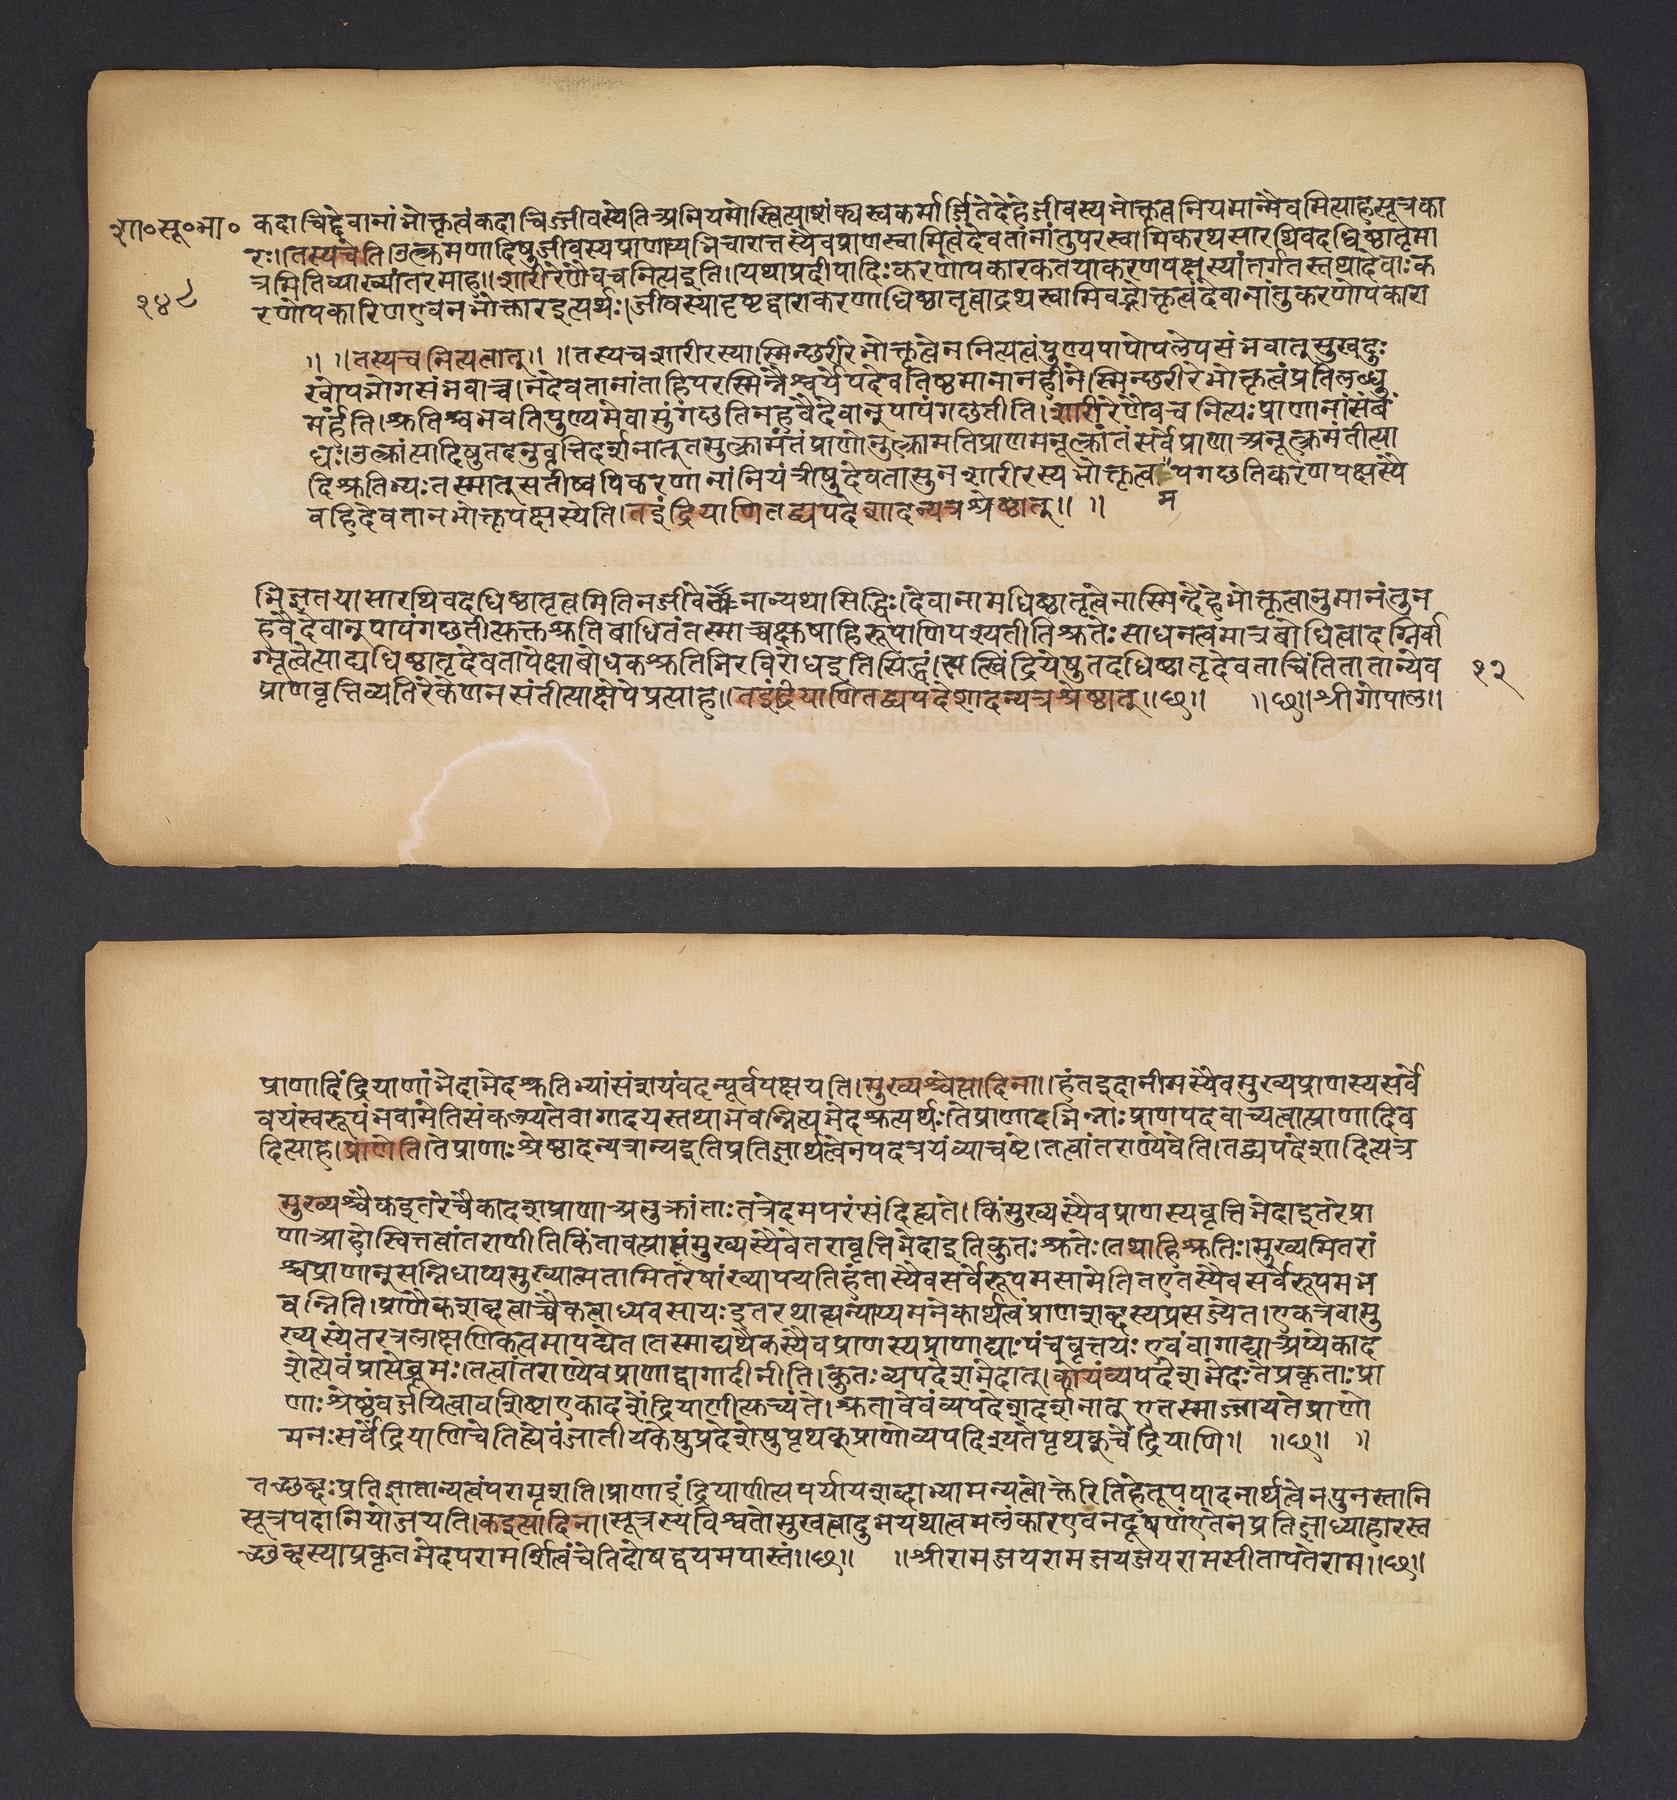 शा० सू० भा०
२४८
कदाचिद्देवानां भोक्तृत्वं कदाचिज्जीवस्येति अनियमोस्त्वित्याशंक्य स्वकर्मार्ज्जिते देहे जीवस्य भोक्तृत्वनियमान्मैवमित्याह सूत्रका
रः। तस्य चेति। उत्क्रमणादिषु जीवस्य प्राणाव्यभिचारात्तस्यैव प्राणस्वामित्वं देवतानां तु परस्वामिकरथसारथिवदधिष्ठातृमा
त्रमिति व्याख्यांतरमाह॥ शारीरेणैव च नित्य इति। यथा प्रदीपादिः करणोपकारकतया करणपक्षस्यांतर्गतस्तथा देवाः क
रणोपकारिण एव न भोक्तार इत्यर्थः। जीवस्यादृष्टद्वारा करणाधिष्ठातृत्वाद्रथस्वामिवद्भोक्तृत्वं देवानां तु करणोपकारा
॥ ॥ तस्य च नित्यत्वात्॥ ॥ तस्य च शारीरस्यास्मिन्छरीरे भोक्तृत्वेन नित्यत्वं पुण्यपापोपलेपसंभवात् सुखदुः
खोपभोगसंभवाच्च। न देवतानां ता हि परस्मिन्नैश्वर्ये पदेवतिष्ठमाना न हीनेस्मिन्छरीरे भोक्तृत्वं प्रतिलब्धु
मर्हंति। श्रुतिश्च भवति पुण्यमेवामुं गछति न ह वै देवान् पापं गछतीति। शारीरेणैव च नित्यः प्राणानां संबं
धः। उत्क्रांत्यादिषु तदनुवृत्तिदर्शनात् तमुत्क्रामंतं प्राणोनूत्क्रामति प्राणमनूत्क्रांतं सर्वे प्राणा अनूत्क्रामंतीत्या
दिश्रुतिभ्यः तस्मात् सतीष्वपि करणानां नियंत्रीषु देवतासु न शारीरस्य भोक्तृत्व पगछति करणपक्षस्यै
म
व हि देवता न भोक्तृपक्षस्येति। त इंद्रियाणि तद्व्यपदेशादन्यत्र श्रेष्ठात्॥ ॥
भिज्ञतया सारथिवदधिष्ठातृत्वमिति न जीवे नान्यथासिद्धिः। देवानामधिष्ठातृत्वेनास्मिन्देहे भोक्तृत्वानुमानं तु न
ह वै देवान् पापं गछतीत्युक्तश्रुतिबाधितं तस्माच्चक्षुषा हि रूपाणि पश्यतीति श्रुतेः साधनत्वमात्रबोधित्वादग्निर्वा
ग्भूत्वेत्याद्यधिष्ठातृदेवतापेक्षाबोधकश्रुतिभिरविरोध इति सिद्धं। सत्स्विंद्रियेषु तदधिष्ठातृदेवताचिंतिता तान्येव
२२
प्राणवृत्तिव्यतिरेकेण न संतीत्याक्षेपे प्रत्याह॥ त इंद्रियाणि तद्व्यपदेशादन्यत्र श्रेष्ठात्॥ छ॥ ॥ छ॥ श्रीगोपाल॥
प्राणादिंद्रियाणां भेदाभेदश्रुतिभ्यां संशयं वदन्पूर्वपक्षयति। मुख्यश्चेत्यादिना॥ हंत इदानीमस्यैव मुख्यप्राणस्य सर्वे
वयं स्वरूपं भवामेति संकल्प्य ते वागादयस्तथाभवन्नित्यभेदश्रुत्यर्थः ति प्राणादभिन्नाः प्राणपदवाच्यत्वात्प्राणादिव
दित्याह। प्राणेति। ते प्राणाः श्रेष्ठादन्यत्रान्य इति प्रतिज्ञार्थत्वेन पदत्रयं व्याचष्टे। तत्वांतराण्येवेति। तद्व्यपदेशादित्यत्र
मुख्यश्चैक इतरे चैकादश प्राणा अनुक्रांताः तत्रेदमपरं संदिह्यते। किं मुख्यस्यैव प्राणस्य वृत्तिभेदा इतरे प्रा
णा आहोस्वित्तत्वांतराणीति किं तावत्प्राप्तं मुख्यस्यैवेतरा वृत्तिभेदा इति कुतः श्रुतेः। तथा हि श्रुतिः। मुख्यमितरां
श्च प्राणान् सन्निधाप्य मुख्यात्मतामितरेषां ख्यापयति हंतास्यैव सर्वे रूपमसामेति त एतस्यैव सर्वे रूपमभ
वन्निति। प्राणैकशब्दत्वाच्चैकत्वाध्यवसायः इतरथा ह्यन्याय्यमनेकार्थत्वं प्राणशब्दस्य प्रसज्येत। एकत्र वा मु
ख्यस्येतरत्र लाक्षणिकत्वमापद्येत। तस्माद्यथैकस्यैव प्राणस्य प्राणाद्याः पंच वृत्तयः एवं वागाद्या अप्येकाद
शेत्येवं प्राप्ते ब्रूमः। तत्वांतराण्येव प्राणाद्वागादीनीति। कुतः व्यपदेशभेदात्। कोयं व्यपदेशभेदः ते प्रकृताः प्रा
णाः श्रेष्ठं वर्ज्जयित्वावशिष्टा एकादशेंद्रियाणीत्युच्यंते। श्रुतावेवं व्यपदेशदर्शनात् एतस्माज्जायते प्राणो
मनः सर्वेंद्रियाणि चेति ह्येवंजातीयकेषु प्रदेशेषु पृथक् प्राणो व्यपदिश्यते पृथक् चेंद्रियाणि॥ ॥ छ॥ ॥
तच्छब्दः प्रतिज्ञातान्यत्वं परामृशति। प्राणा इंद्रियाणीत्यपर्यायशब्दाभ्यामन्यत्वोक्तेरिति हेतूपपादनार्थत्वेन पुनस्तानि
सूत्रपदानि योजयति। क इत्यादिना। सूत्रस्य विश्वतोमुखत्वादुभयथात्वमलंकार एव न दूषणं एतेन प्रतिज्ञाध्याहारस्त
च्छब्दस्याप्रकृतभेदपरामर्शित्वं चेति दोषद्वयमपास्तं॥ छ॥ ॥ श्रीराम जयराम जयजयराम सीतापतेराम॥ छ॥